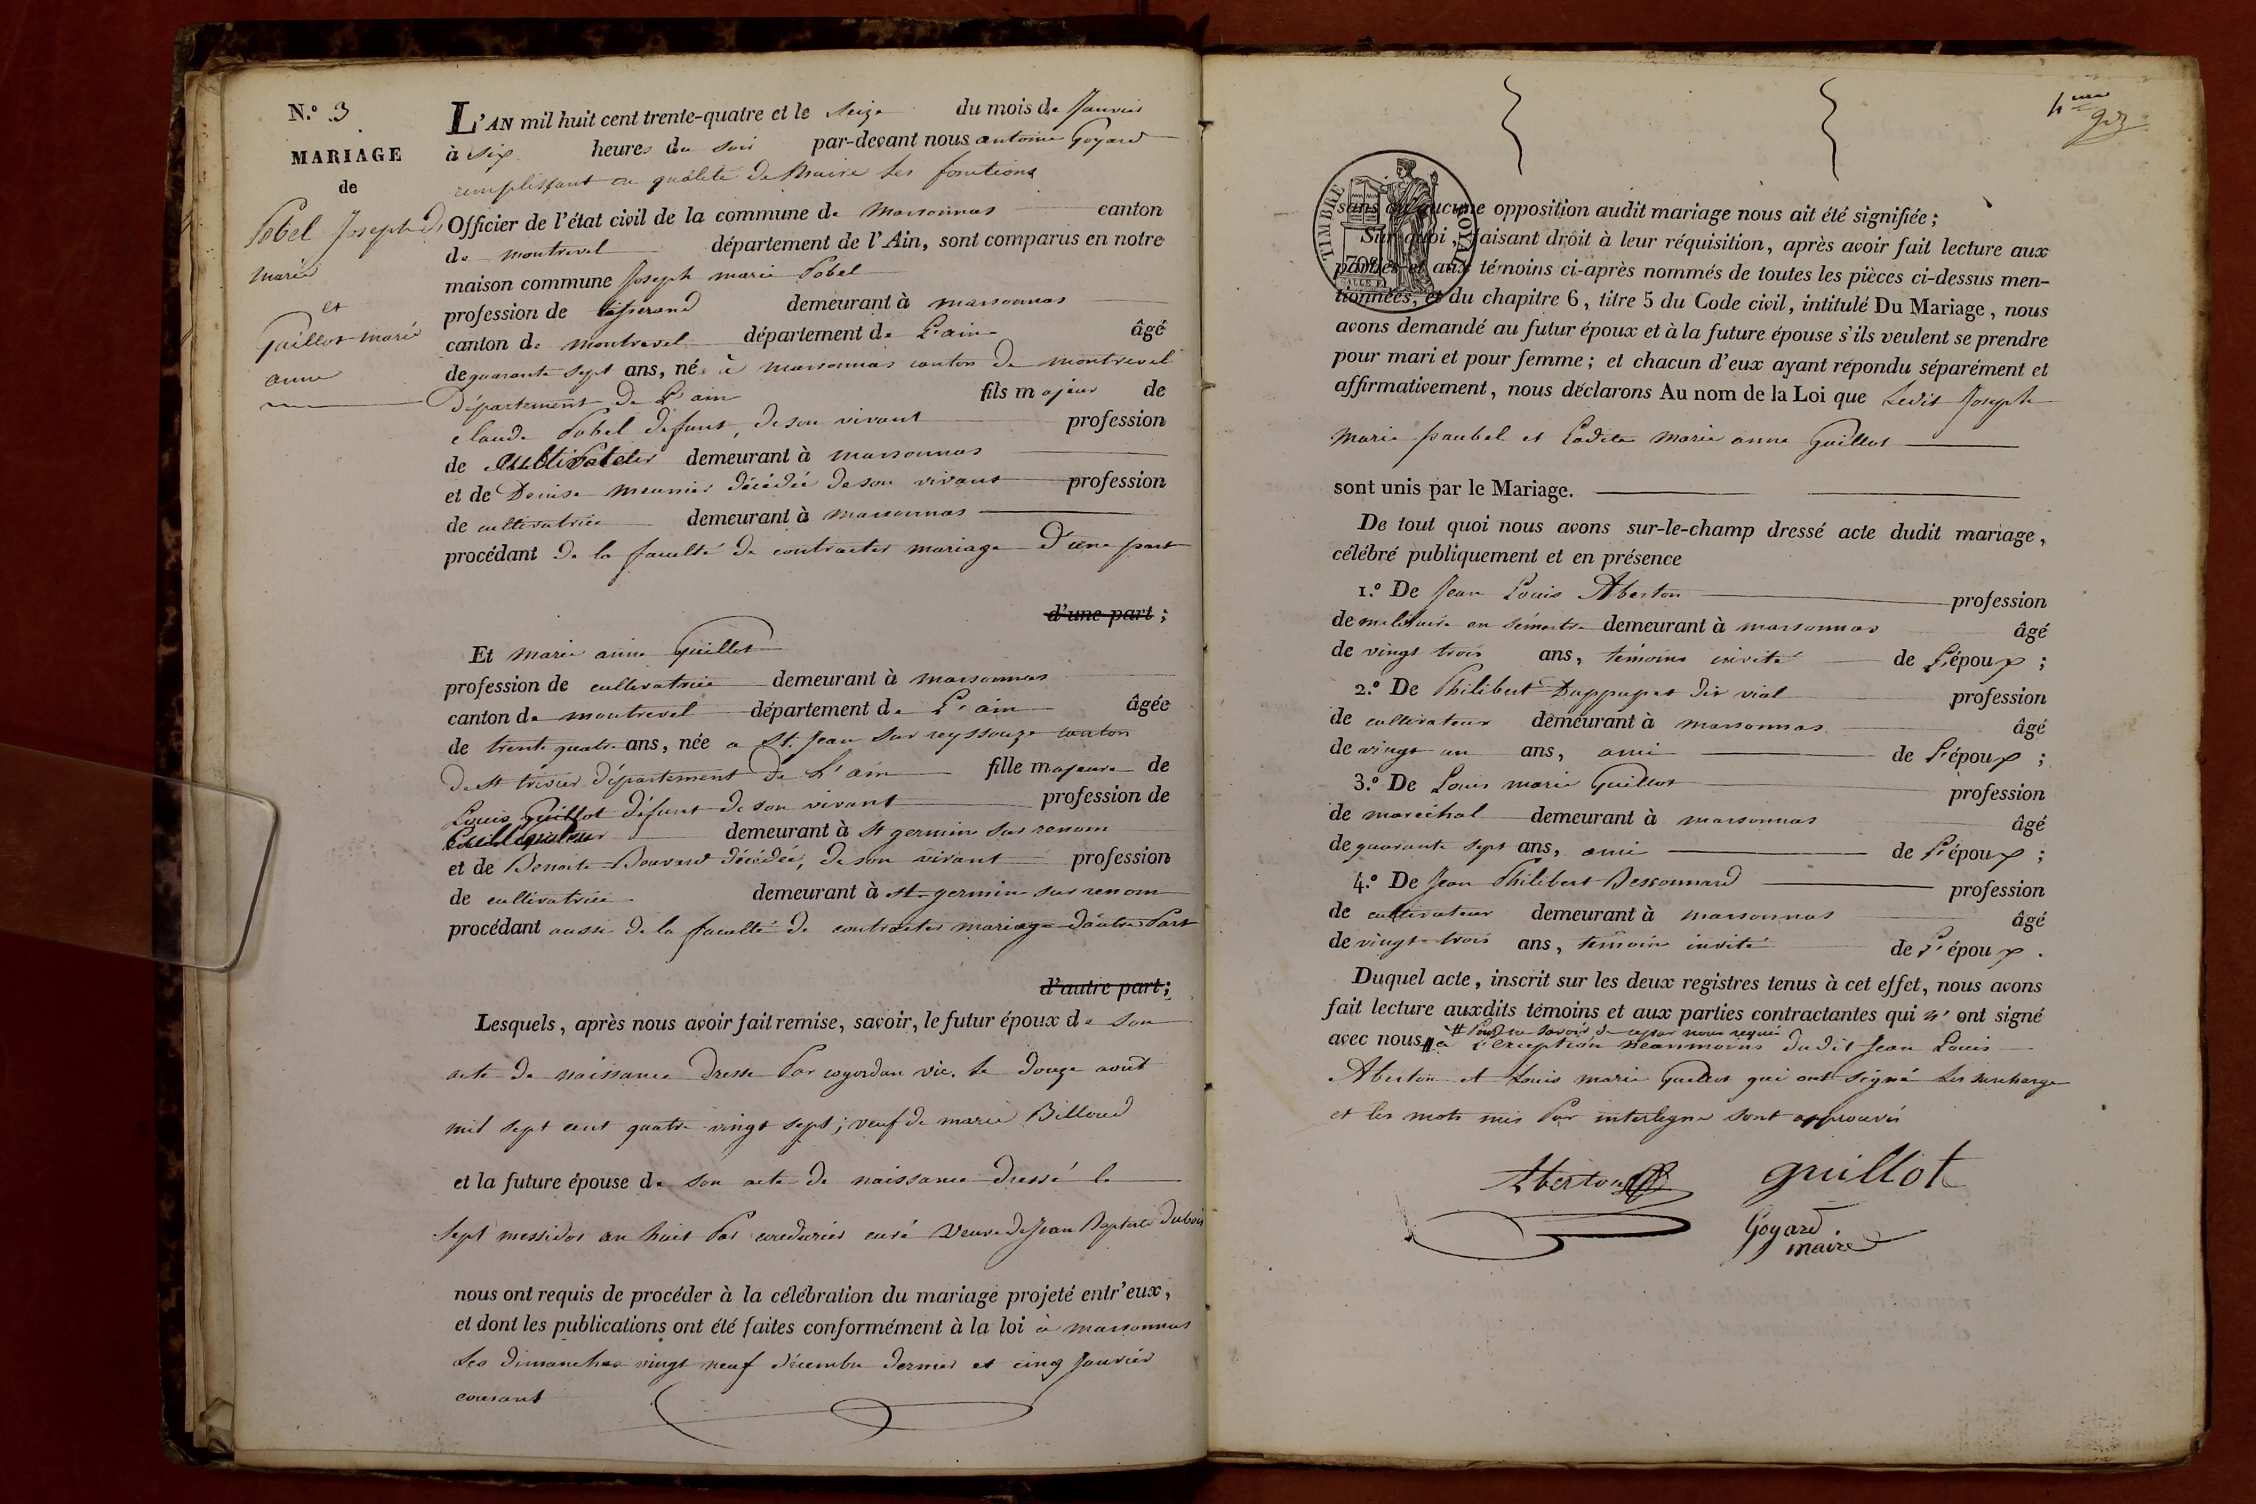 N.º 3
MARIAGE
de
Pobel Joseph
marie
et
Guillot marie
anne
L'AN mil huit cent trente-quatre et le seize du mois de Janvier
à six heures du soir par-devant nous antoine Goyard
remplissant en qualité de Maire les fonctions
Officier de l'état civil de la commune de marsonnas canton
de montrevel département de l'Ain, sont comparus en notre
maison commune Joseph marie Pobel
profession de tisserand demeurant à marsonnas
canton de montrevel département de L'ain âgé
de quarante sept ans, né à marsonnas canton de montrevel
département de L'ain fils majeur de
claude Pobel défunt, de son vivant profession
de cultivateur demeurant à marsonnas
et de Denise meunier décédée de son vivant profession
de cultivatrice demeurant à marsonnas
procédant de la faculté de contracter mariage d'une part
d'une part ;
Et marie anne Guillot
profession de cultivatrice demeurant à marsonnas
canton de montrevel département de L'ain âgée
de trente quatre ans, née a St. Jean sur reyssouze canton
de st trivier département de L'ain fille majeure de
Louis Guillot défunt de son vivant profession de
demeurant à st germin sur renom
et de Benoite Bouvard décédée, de son vivant profession
de cultivatrice demeurant à st germin sur renom
procédant aussi de la faculté de contracter mariage d'autre Part
d'autre part ;
Lesquels, après nous avoir fait remise, savoir, le futur époux de son
acte de naissance dressé Par vic. le douze août
mil sept cent quatre vingt sept ; veuf de marie Billoud
et la future épouse de son acte de naissance dressé le
sept messidor an huit Par couturier curé veuve de Jean Baptiste dubois
nous ont requis de procéder à la célébration du mariage projeté entr'eux,
et dont les publications ont été faites conformément à la loi à marsonnas
les dimanches vingt neuf décembre dernier et cinq Janvier
courant
TIMBRE ROYAL
sans qu'aucune opposition audit mariage nous ait été signifiée ;
Sur quoi, faisant droit à leur réquisition, après avoir fait lecture aux
parties et aux témoins ci-après nommés de toutes les pièces ci-dessus men-
tionnées, et du chapitre 6, titre 5 du Code civil, intitulé Du Mariage, nous
avons demandé au futur époux et à la future épouse s'ils veulent se prendre
pour mari et pour femme ; et chacun d'eux ayant répondu séparément et
affirmativement, nous déclarons Au nom de la Loi que Ledit Joseph
marie paubel et Ladite marie anne Guillot
sont unis par le Mariage.
De tout quoi nous avons sur-le-champ dressé acte dudit mariage,
célébré publiquement et en présence
1.º De Jean Louis Aberton profession
de militaire en sémestre demeurant à marsonnas âgé
de vingt trois ans, témoins invité de L'époux ;
2.º De Philibert Duppupet dit vial profession
de cultivateur demeurant à marsonnas âgé
de vingt un ans, ami de L'époux ;
3.º De Louis marie Guillot profession
de maréchal demeurant à marsonnas âgé
de quarante sept ans, ami de L'époux ;
4.º De Jean Philibert Bessonnard profession
de cultivateur demeurant à marsonnas âgé
de vingt trois ans, témoin invité de L'époux .
Duquel acte, inscrit sur les deux registres tenus à cet effet, nous avons
fait lecture auxdits témoins et aux parties contractantes qui n'ont signé
# Pour ne savoir de ce par nous requis
avec nous # à L'exception néanmoins dudit Jean Louis
Aberton et Louis marie Guillot qui ont signé les surcharge
et les mots mis Par interligne sont approuvés
Aberton guillot
Goyard
maire